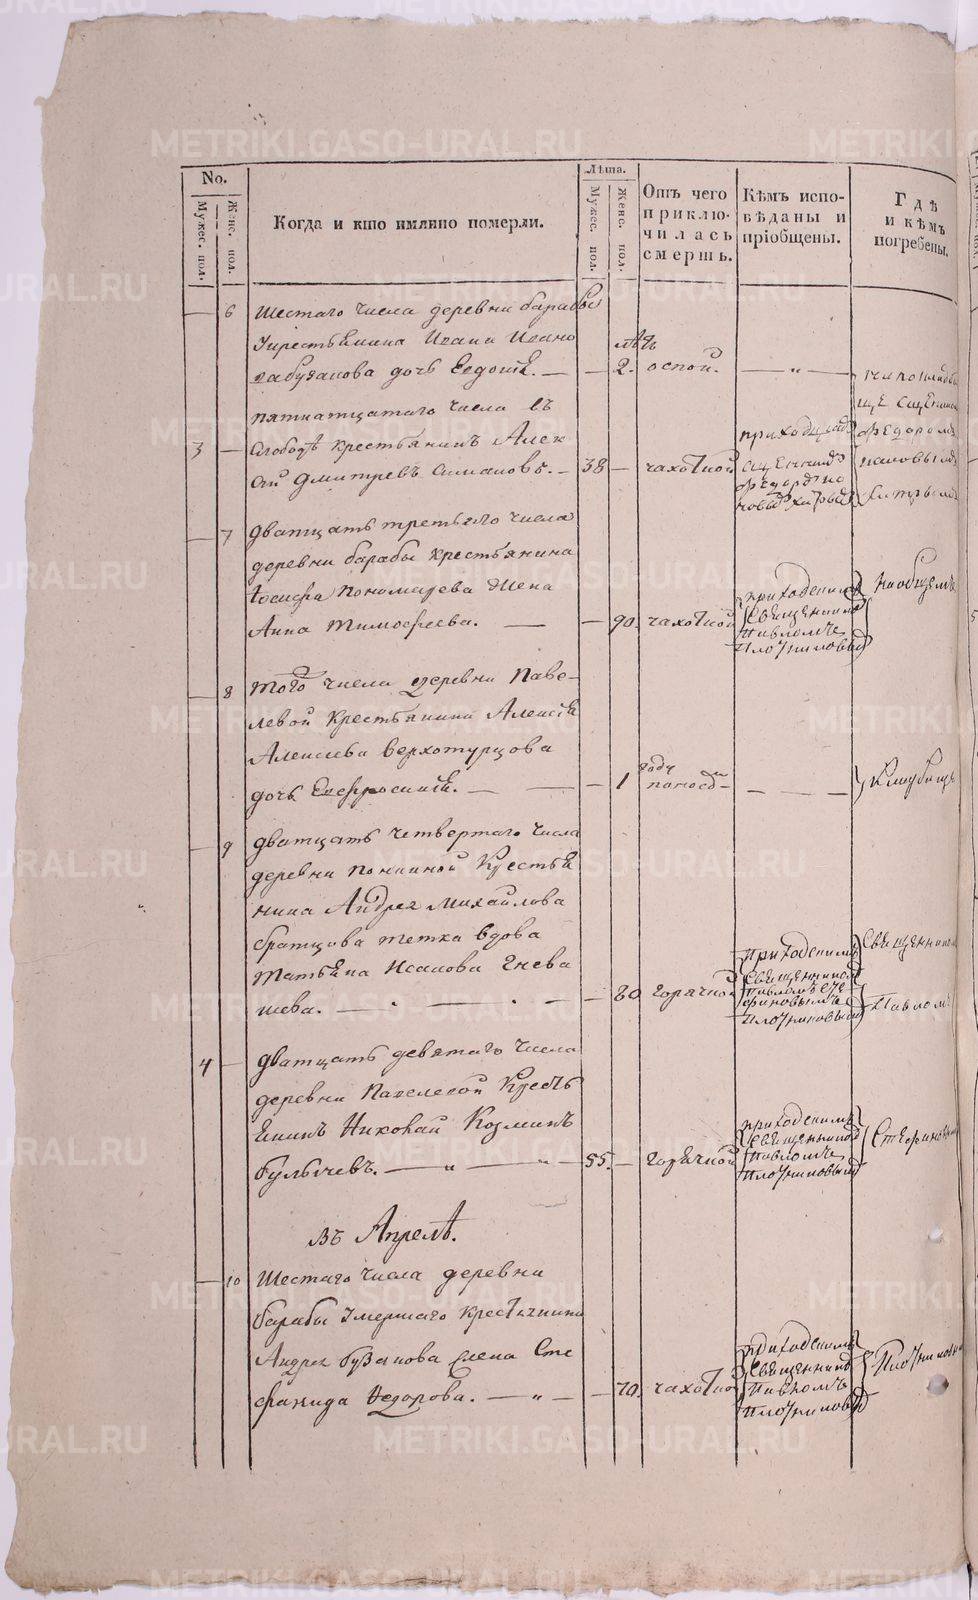 METRIKI.GASO-URAL.RU
No.
Мужес. пол.
Женс. пол.
Когда и кто имянно померли.
Лѣта.
Мужес. пол.
Женс. пол.
Отъ чего приклю-
чилась
смерть.
Кѣмъ испо-
вѣданы и
пріобщены.
Гдѣ
и кѣмъ
погребены.
— 6 Шестаго числа деревни барабы
крестьянина Ивана Ивано
дочь Евдокіѣ. — — 2. лѣтъ оспой. — „ —
пятнатцатаго числа въ
3 — слободѣ крестьянинъ Алек
сѣй Дмитревъ — 38 — чахоткой
приходскимъ
священник
Федоромъ
— 7 дватцать третьяго числа
деревни барабы крестьянина
Іосифа Пономарева жена
Анна Тимофеева. — — 90. чахоткой
приходскимъ
священником
павломъ
плотниковым
на общемъ
— 8 того числа деревни Паве-
левой крестьянина Алексѣя
Алексѣева верхотурцова
дочь Евфросинія. — — 1 году поносо —
— — —
кладбищѣ
— 9 дватцать четвертаго числа
деревни крестья
нина Андрея Михайлова
братцова тетка вдова
Татьяна Исакова Гнева
шева. — — 80 горячкой
приходскимъ
священником
плотниковым
священником
Павломъ
4 — дватцать девятаго числа
деревни Павелевой крест
янинъ Николай Козминъ
Булычевъ. — „ — „ — 55. — горячкой
приходскимъ
священникой
павломъ
плотниковым
Стефиновым
въ Апрелѣ.
— 10 Шестаго числа деревни
барабы умершаго крестьянина
Андрея Бузанова Сте
фанида Федорова. — „ — — 70. чахоткой
приходскимъ
священник
павломъ
плотниковым
Плотниковым